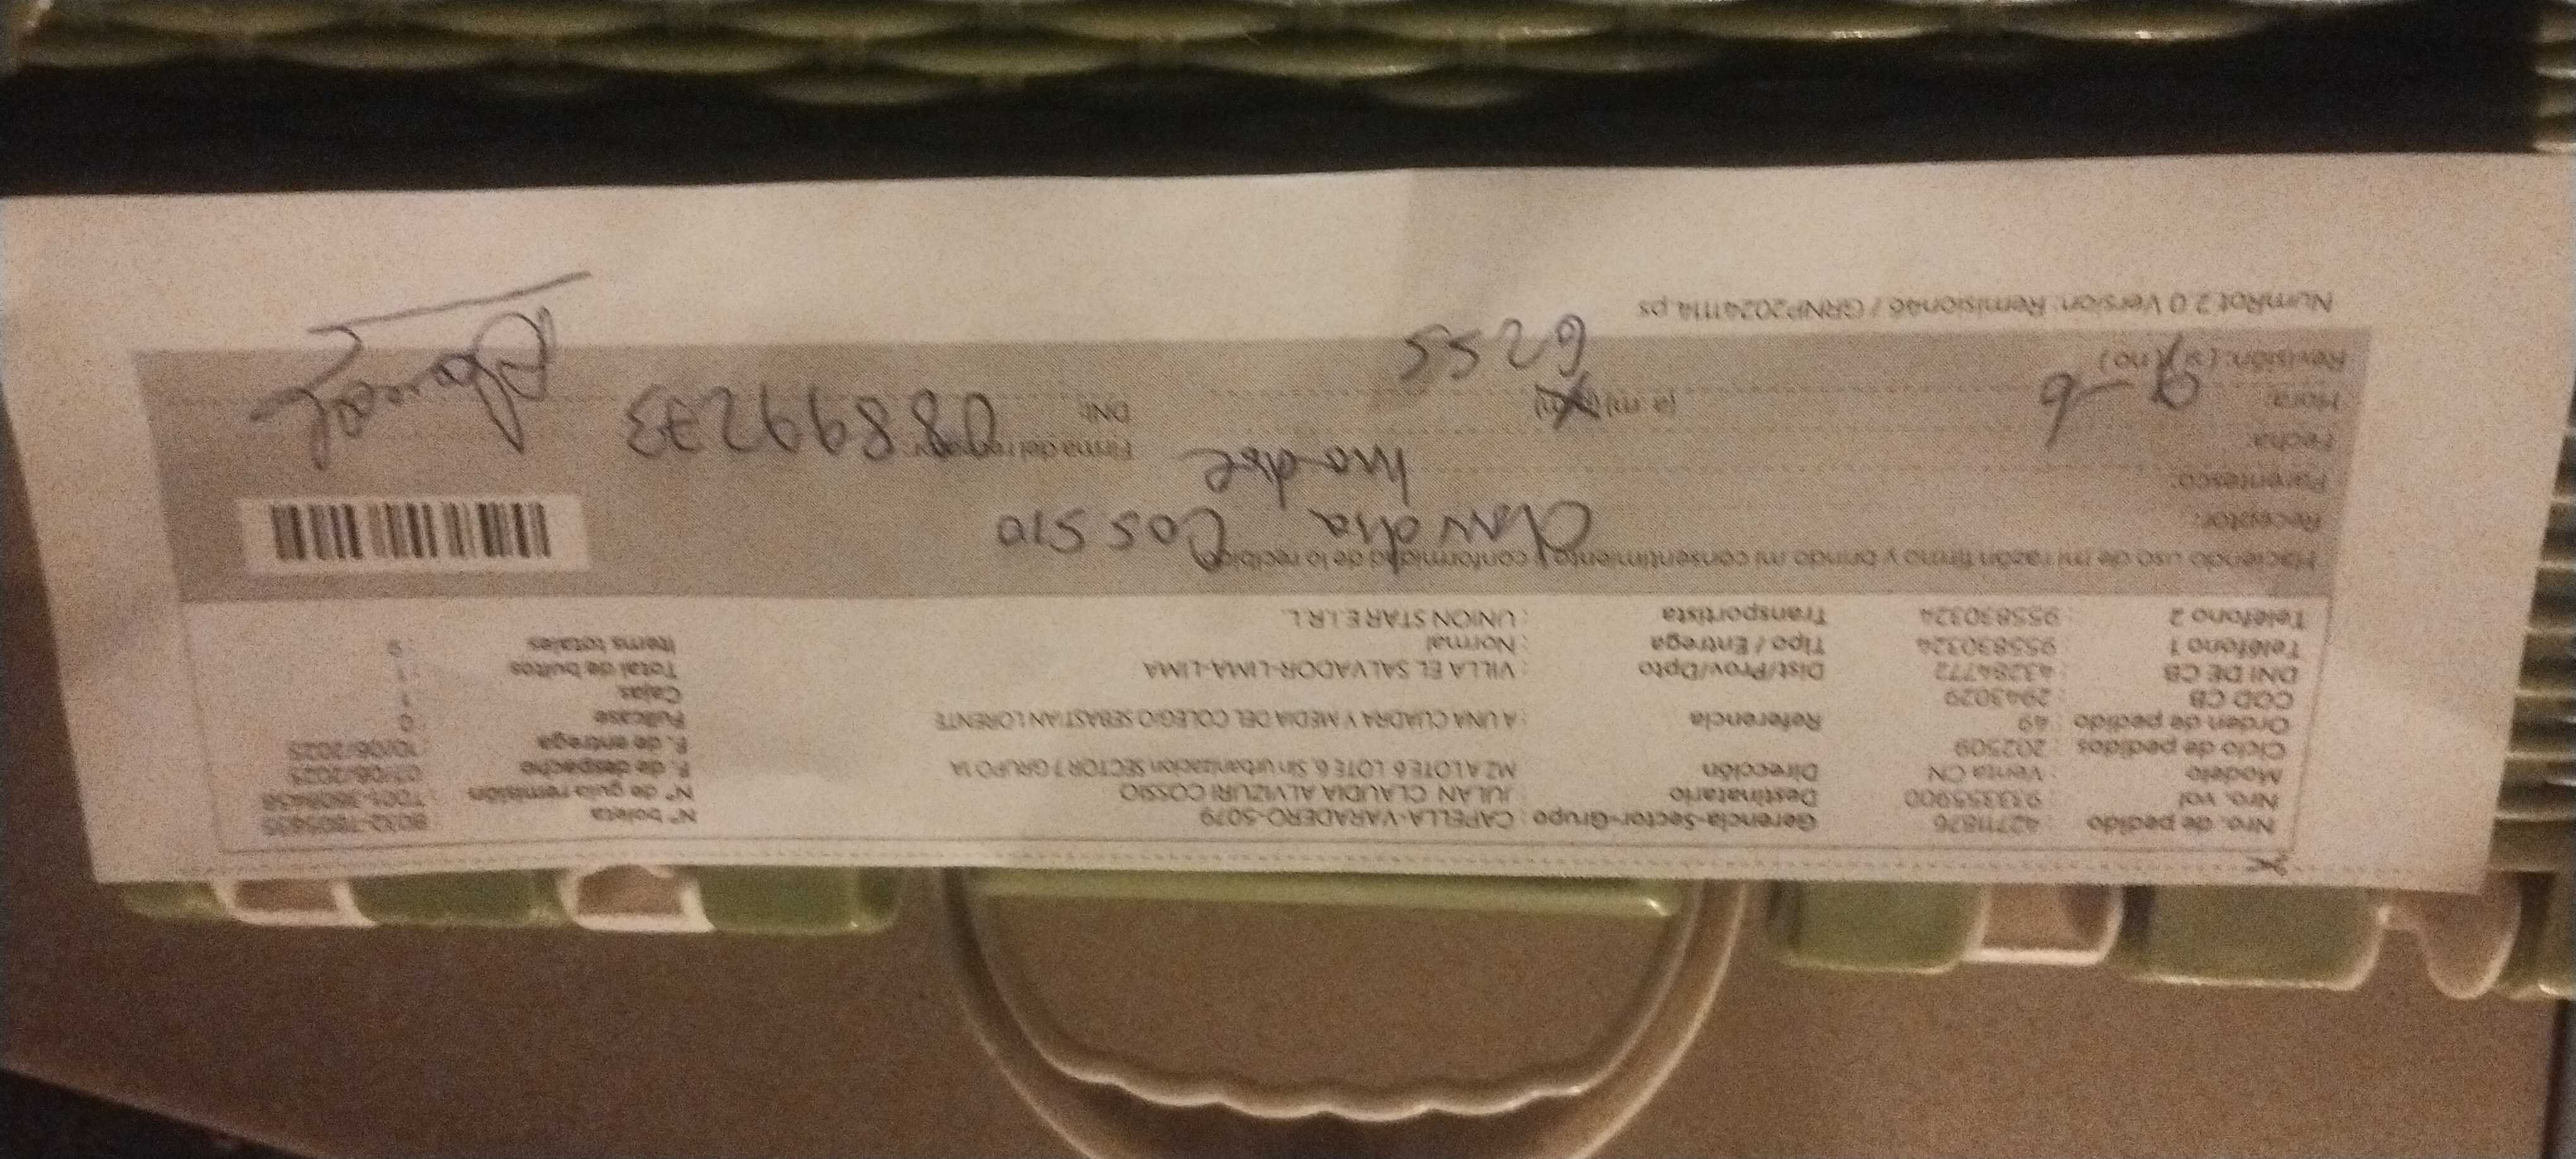 Nro. de pedido : 42711876 Gerencia-Sector-Grupo : CAPELLA-VARADERO-5079 N° boleta : B032-7805635
Nro. vol : 933355900 Destinatario : JULAN CLAUDIA ALVIZURI COSSIO N° de guía remisión : T001-3608458
Modelo : Venta CN Dirección : MZ A LOTE 6 LOTE 6, Sin urbanizacion SECTOR 7 GRUPO 1A F. de despacho : 07/06/2025
Ciclo de pedidos : 202509 F. de entrega : 10/06/2025
Orden de pedido : 49 Referencia : A UNA CUADRA Y MEDIA DEL COLEGIO SEBASTIAN LORENTE Fullcase : 0
COD CB : 2943029 Cajas : 1
DNI DE CB : 43284772 Dist/Prov/Dpto : VILLA EL SALVADOR-LIMA-LIMA Total de bultos : 1
Teléfono 1 : 955830324 Tipo / Entrega : Normal Items totales : 9
Teléfono 2 : 955830324 Transportista : UNION STAR E.I.R.L.
Haciendo uso de mi razón firmo y brindo mi consentimiento y conformidad de lo recibido
Receptor: Claudia Cossio
Parentesco: madre
Fecha: 9-6 Firma del receptor:
Hora: (a.m) (p.m) DNI: 08899273
Revisión: ( si / no ) 6255
NumRot 2.0 Version: Remision46 / GRNP20241114.ps